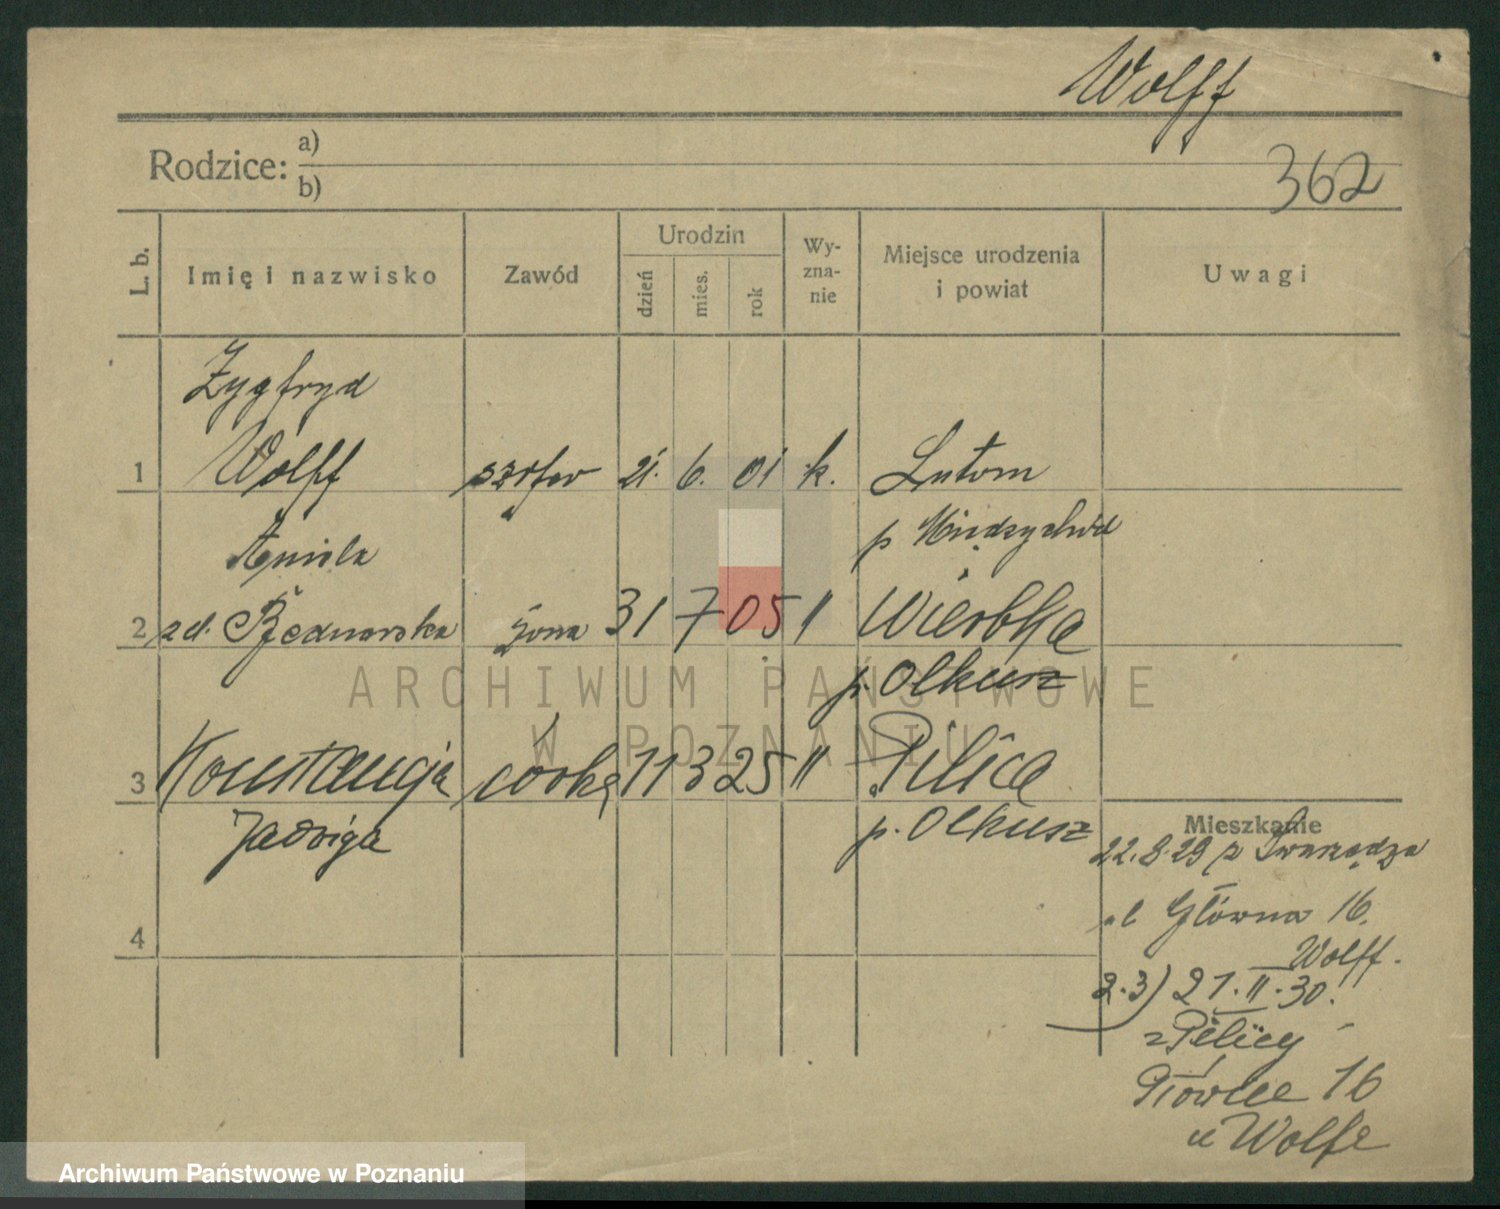 Wolff
Rodzice: a)
b)
362
L. b.
Imię i nazwisko
Zawód
Urodzin
dzień
mies.
rok
Wy-
zna-
nie
Miejsce urodzenia
i powiat
Uwagi
Zygfryd
1 Wolff szofer 21. 6. 01 k. Lutom
p Międzychód
Aniela
2 zd. Bednarska żona 31 7 05 " Wierbka
p. Olkusz
3 Konstancja córka 11 3 25 " Pilica
Jadwiga
p. Olkusz
4
Mieszkanie
22.8.29 z Swarzędza
ul Główna 16.
Wolff.
2.3) 21.II.30.
z Pilicy
Główna 16
u Wolfa
ARCHIWUM PAŃSTWOWE
W POZNANIU
Archiwum Państwowe w Poznaniu